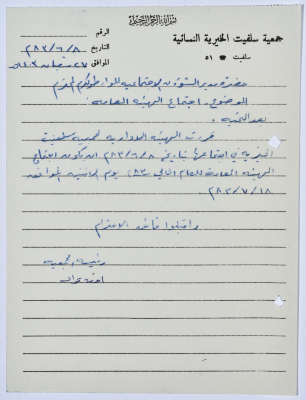 بسم الله الرحمن الرحيم
جمعية سلفيت الخيرية النسائية
سلفيت ☎ ٥١
الرقم
التاريخ ٨٣/٦/٨
الموافق ٢٧ شعبان ١٤٠٣هـ
حضرة مدير الشؤون الاجتماعية المحترم
الموضوع: اجتماع الهيئة العامة
بعد التحية،
قررت الهيئة الادارية لجمعية سلفيت
الخيرية في اجتماعها بتاريخ ٨٣/٦/٨ ان يكون اجتماع
الهيئة العامة للعام الحالي ٨٣ يوم الاثنين الموافق
٨٣/٧/١٨
واقبلوا فائق الاحترام
رئيسة الجمعية